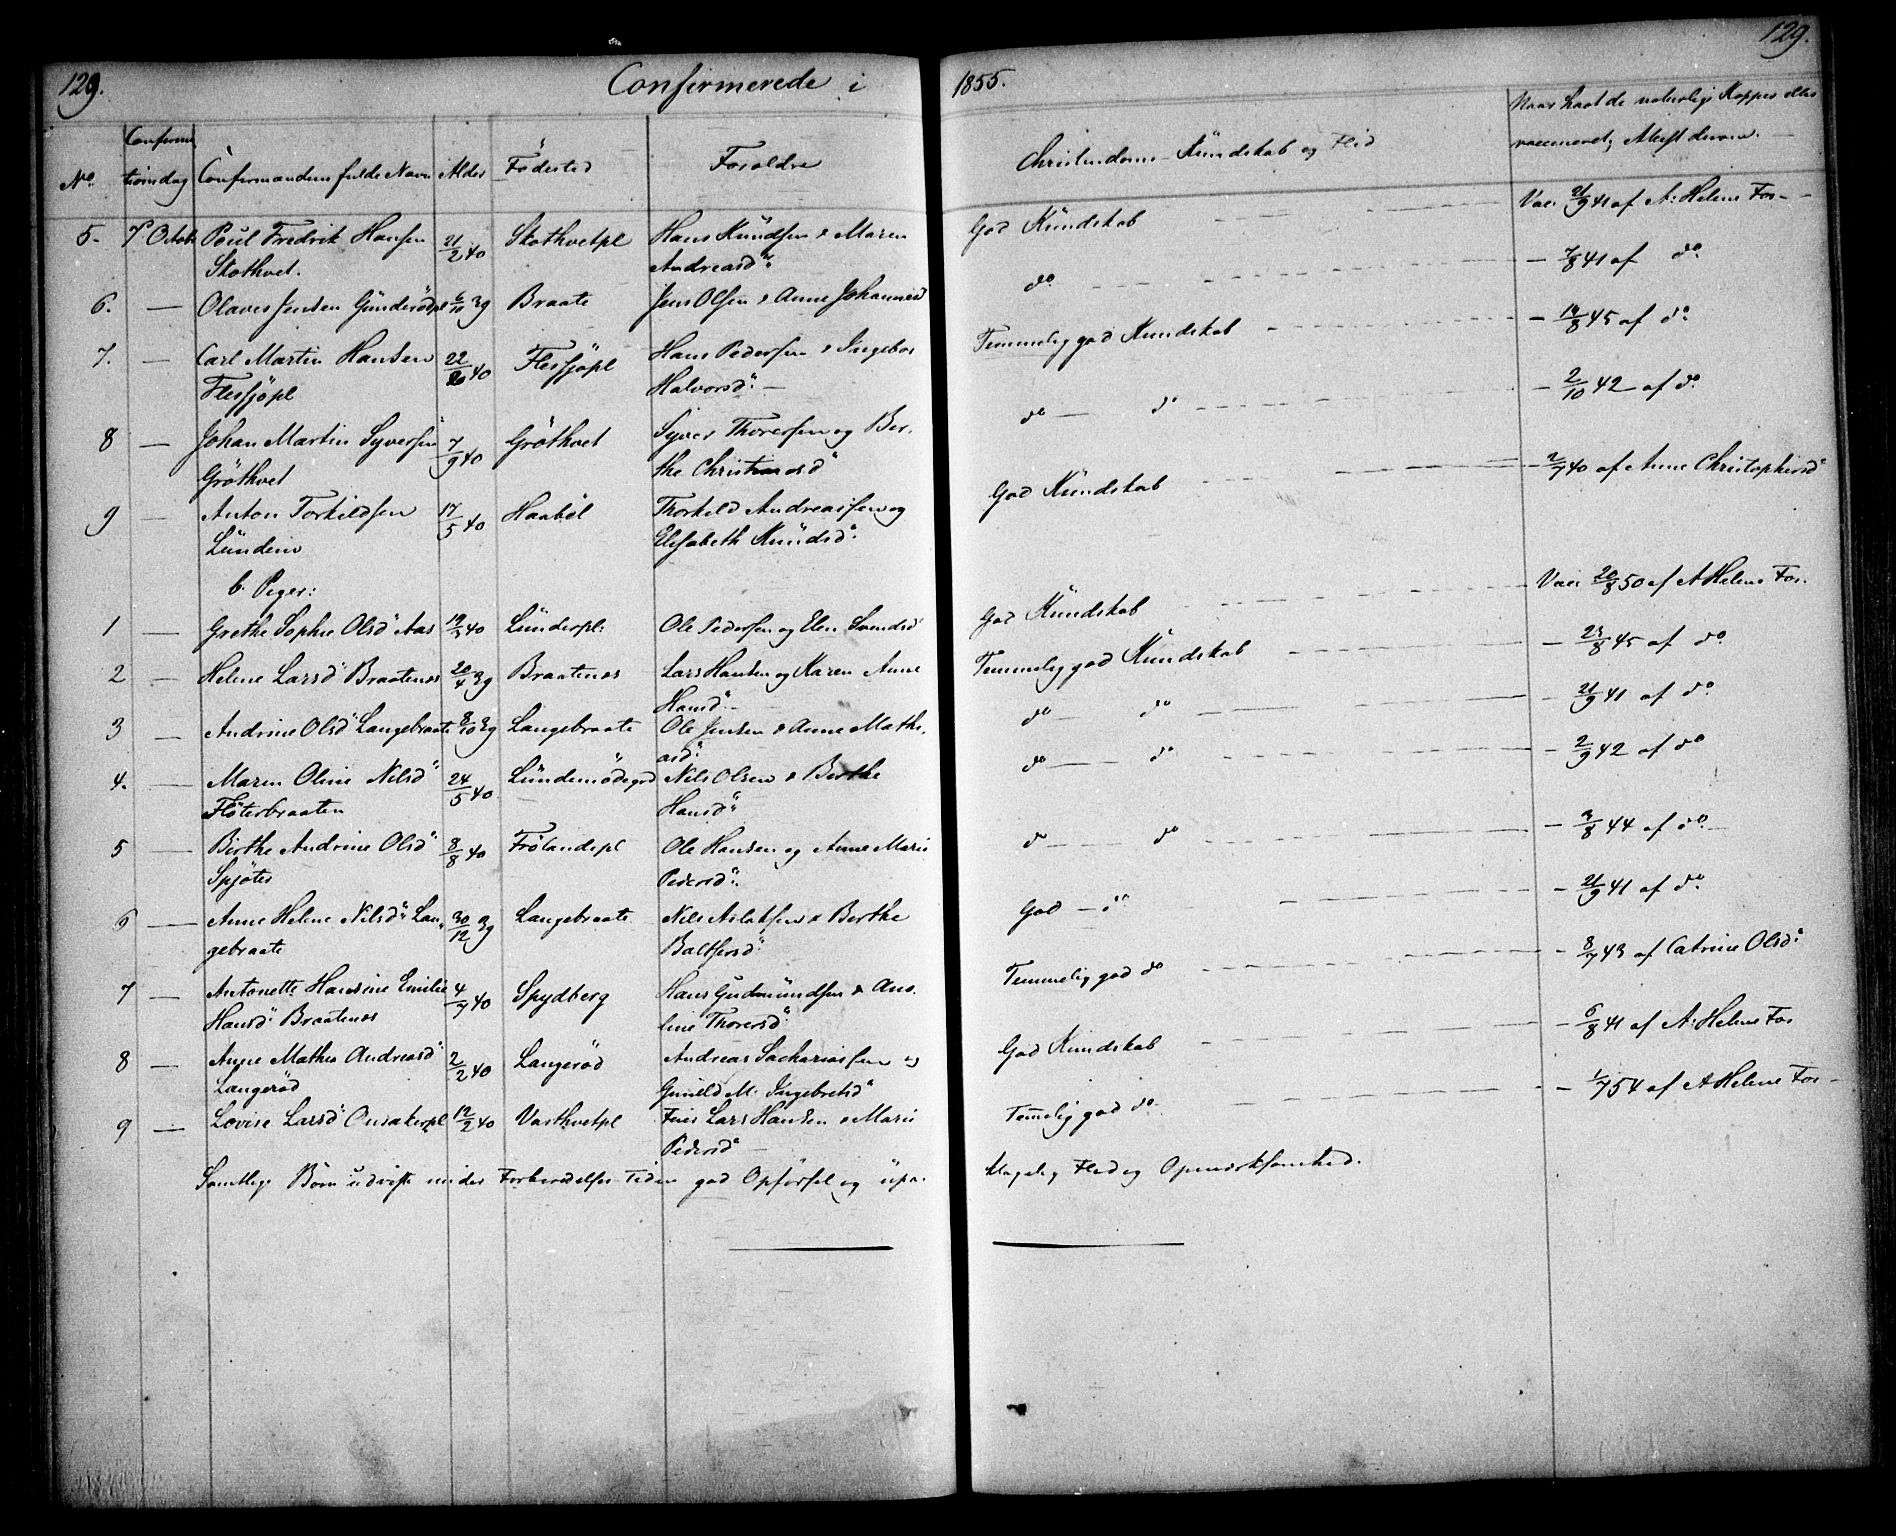 129.
Confirmerede i
1855.
129.
No.
Confirma
tionsdag
Confirmandens fulde Navn
Alder
Födested
Foraldre
Christendoms-Kundskab og Flid
Naar havt de naturlige Kopper eller
vaccineret, Attest derom.
5. 7 Octob Poul Fredrik Hansen 21/2 40 Skothvetpl Hans Knudsen & Maren God Kundskab Vac. 21/9 41 af A. Helene Fos-
Skothvet. Andreasd.
6. — Olaves Jensen Günderödpl 6/10 39 Braate Jens Olsen & Anne Johannesd do — 7/8 41 af do
7. — Carl Martin Hansen 22/10 40 Flesjöpl Hans Pedersen & Ingebor Temmelig god Kundskab — 19/8 45 af do
Flesjöpl Halvorsd. —
8 — Johan Martin Syversen 7/9 40 Gröthvet Syver Thoresen og Ber- do — do — 2/10 42 af do
Gröthvet the Christiansd
9 — Anton Torkildsen 17/5 40 Haaböl Thorkild Andreassen og God Kundskab — 2/7 40 af Anne Christophersd
Lundem Elisabeth Knudsd.
b. Piger:
1 — Grethe Sophie Olsd Aas 19/3 40 Lunderpl: Ole Pedersen og Elen Svendsd God Kundskab Vac. 20/8 50 af A Helene Fos.
2 — Helene Larsd Braatenes 20/4 39 Braatenes Lars Hansen og Karen Anne Temmelig god Kundskab — 23/8 45 af do
Hansd. —
3 — Andrine Olsd Langebraate 8/10 39 Langebraate Ole Jensen & Anne Mathi- do — do — 21/9 41 af do
asd.
4. — Maren Oline Nilsd 24/5 40 Lundemödegrd Nils Olsen & Berthe do — do — 2/9 42 af do
Flöterbraaten Hansd
5 — Birthe Andrine Olsd 8/8 40 Frölandspl Ole Hansen og Anne Marie do — do — 3/8 44 af do
Spjöter Pedersd.
6 — Anne Helene Nilsd Lan- 30/12 39 Langebraate Nils Aslaksen & Berthe God — do — 21/9 41 af do
gebraate Baltsersd
7 — Antonette Hansine Emilie 4/7 40 Spydberg Hans Gudmundsen & Ano- Temmelig god do — 8/7 43 af Catrine Olsd.
Hansd. Braatenes line Thoresd
8 — Anne Mathea Andreasd 2/2 40 Langeröd Andreas Sachariassen og God Kundskab — 6/8 41 af A. Helene Fos
Langeröd Gunild M. Ingebretsd
9 — Lovise Larsd Onsakerpl 12/2 40 Vasthvetpl Lars Hansen & Marie Temelig god do — 1/7 54 af A Helene Fos-
Pedersd —
Samtlige Börn udviste under Forberedelses Tiden god Opförsel og upa- klagelig Flid og Opmærksomhed.